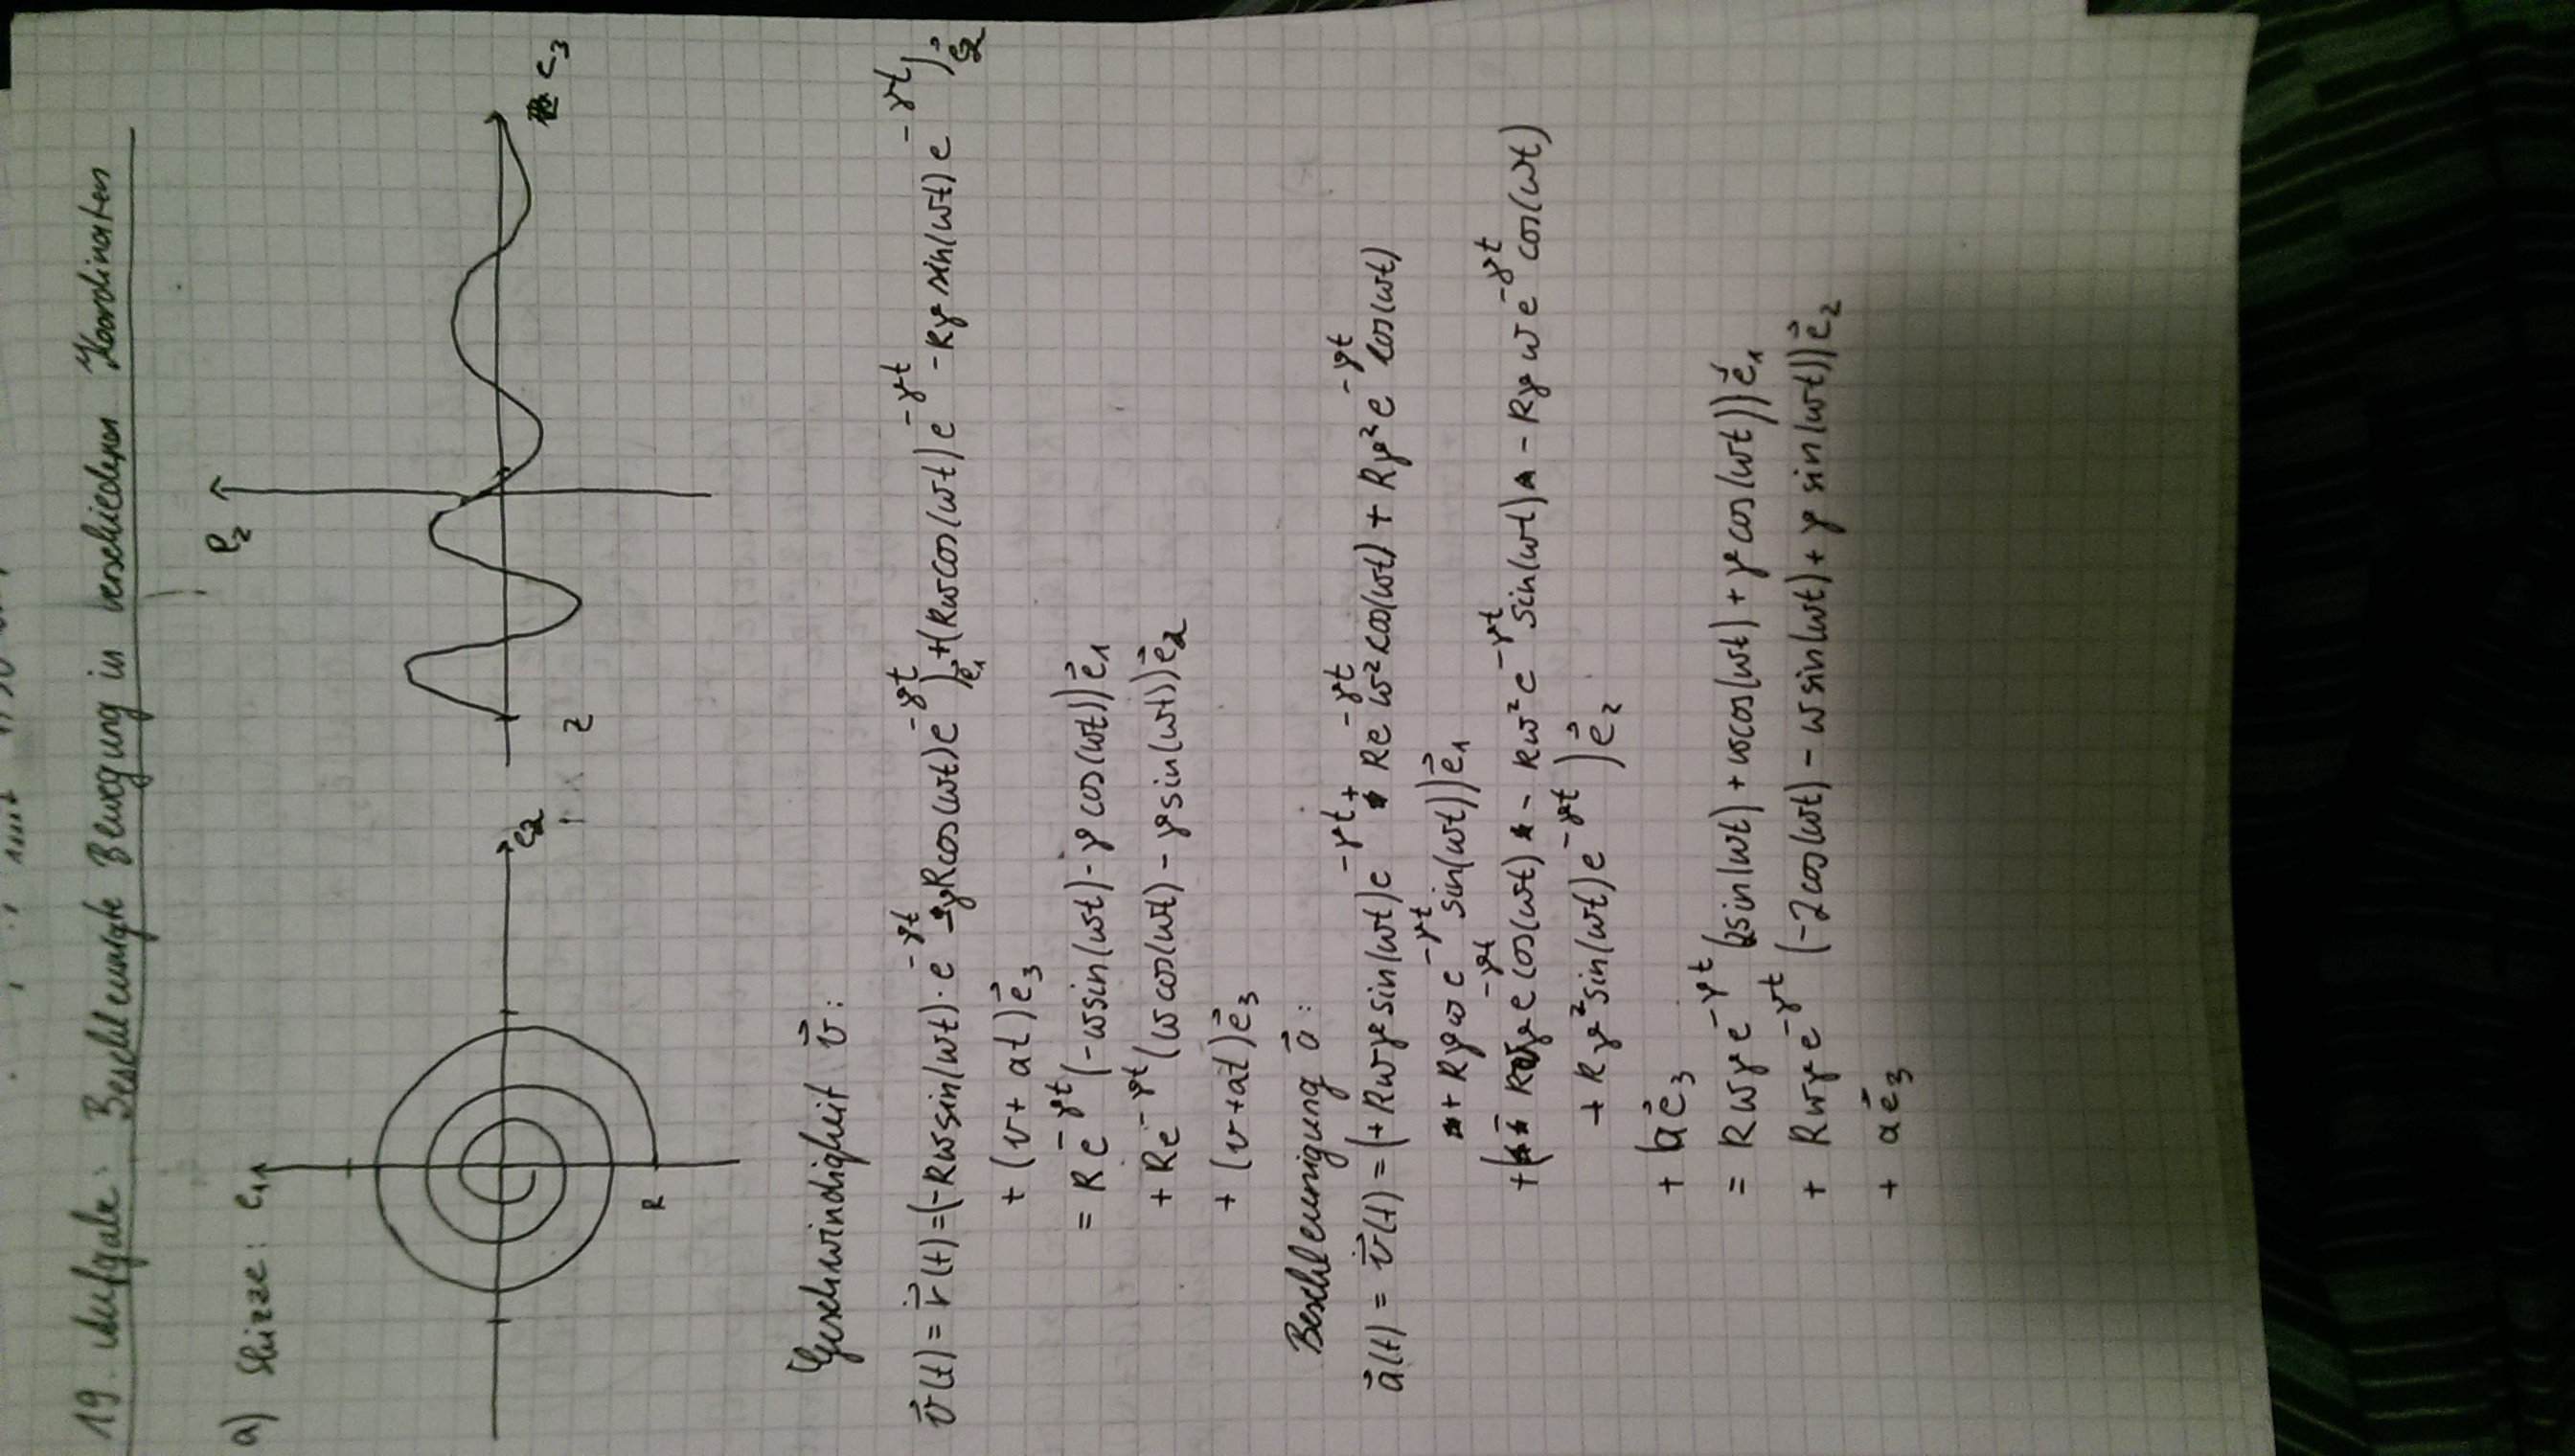 19. Aufgabe: Beschleunigte Bewegung in verschiedenen Koordinaten
a) Skizze:
e₁
e₂
R
e₂
e₃
z
Geschwindigkeit v⃗:
v⃗(t) = ṙ⃗(t) = (-Rω sin(ωt)·e^(-γt) - γR cos(ωt)e^(-γt))e⃗₁ + (Rω cos(ωt)e^(-γt) - Rγ sin(ωt)e^(-γt))e⃗₂
+ (v + at)e⃗₃
= Re^(-γt)(-ω sin(ωt) - γ cos(ωt))e⃗₁
+ Re^(-γt)(ω cos(ωt) - γ sin(ωt))e⃗₂
+ (v+at)e⃗₃
Beschleunigung a⃗:
a⃗(t) = v̇⃗(t) = (+Rωγ sin(ωt)e^(-γt) + Re^(-γt)ω² cos(ωt) + Rγ²e^(-γt)cos(ωt)
+ Rγωe^(-γt) sin(ωt))e⃗₁
+(- Rωγe^(-γt) cos(ωt) - Rω²e^(-γt) sin(ωt) - Rγωe^(-γt) cos(ωt)
+ Rγ² sin(ωt)e^(-γt))e⃗₂
+ ae⃗₃
= Rωγe^(-γt)(2 sin(ωt) + ω cos(ωt) + γ cos(ωt))e⃗₁
+ Rωγe^(-γt)(-2 cos(ωt) - ω sin(ωt) + γ sin(ωt))e⃗₂
+ ae⃗₃